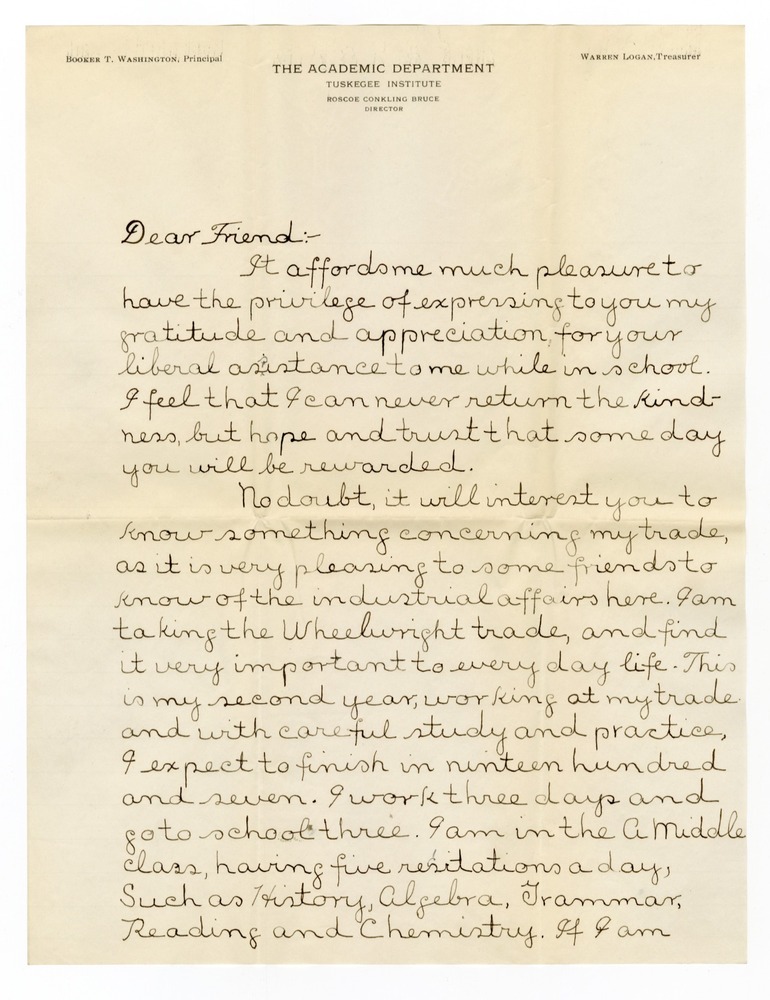 BOOKER T. WASHINGTON, Principal
WARREN LOGAN, Treasurer
THE ACADEMIC DEPARTMENT
TUSKEGEE INSTITUTE
ROSCOE CONKLING BRUCE
DIRECTOR
Dear Friend:-
It affords me much pleasure to
have the privilege of expressing to you my
gratitude and appreciation, for your
liberal assistance to me while in school.
I feel that I can never return the kind-
ness, but hope and trust that some day
you will be rewarded.
No doubt, it will interest you to
know something concerning my trade,
as it is very pleasing to some friends to
know of the industrial affairs here. I am
taking the Wheelwright trade, and find
it very important to every day life. This
is my second year, working at my trade
and with careful study and practice,
I expect to finish in ninteen hundred
and seven. I work three days and
go to school three. I am in the A Middle
class, having five resitations a day,
Such as History, Algebra, Grammar,
Reading and Chemistry. If I am